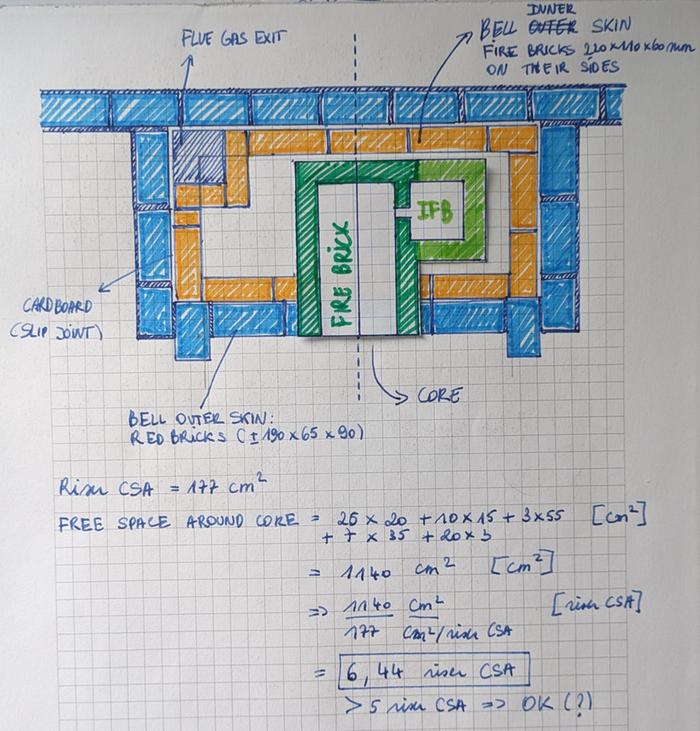 FLUE GAS EXIT
INNER
BELL OUTER SKIN
FIRE BRICKS 220x110x60mm
ON THEIR SIDES
FIRE BRICK
IFB
CARDBOARD
(SLIP JOINT)
CORE
BELL OUTER SKIN:
RED BRICKS (±190x65x90)
Riser CSA = 177 cm²
FREE SPACE AROUND CORE = 26 x 20 + 10 x 15 + 3x55 [cm²]
+ 7 x 35 + 20 x 3
= 1140 cm² [cm²]
=> 1140 cm² [riser CSA]
177 cm²/riser CSA
= 6,44 riser CSA
> 5 riser CSA => OK (?)